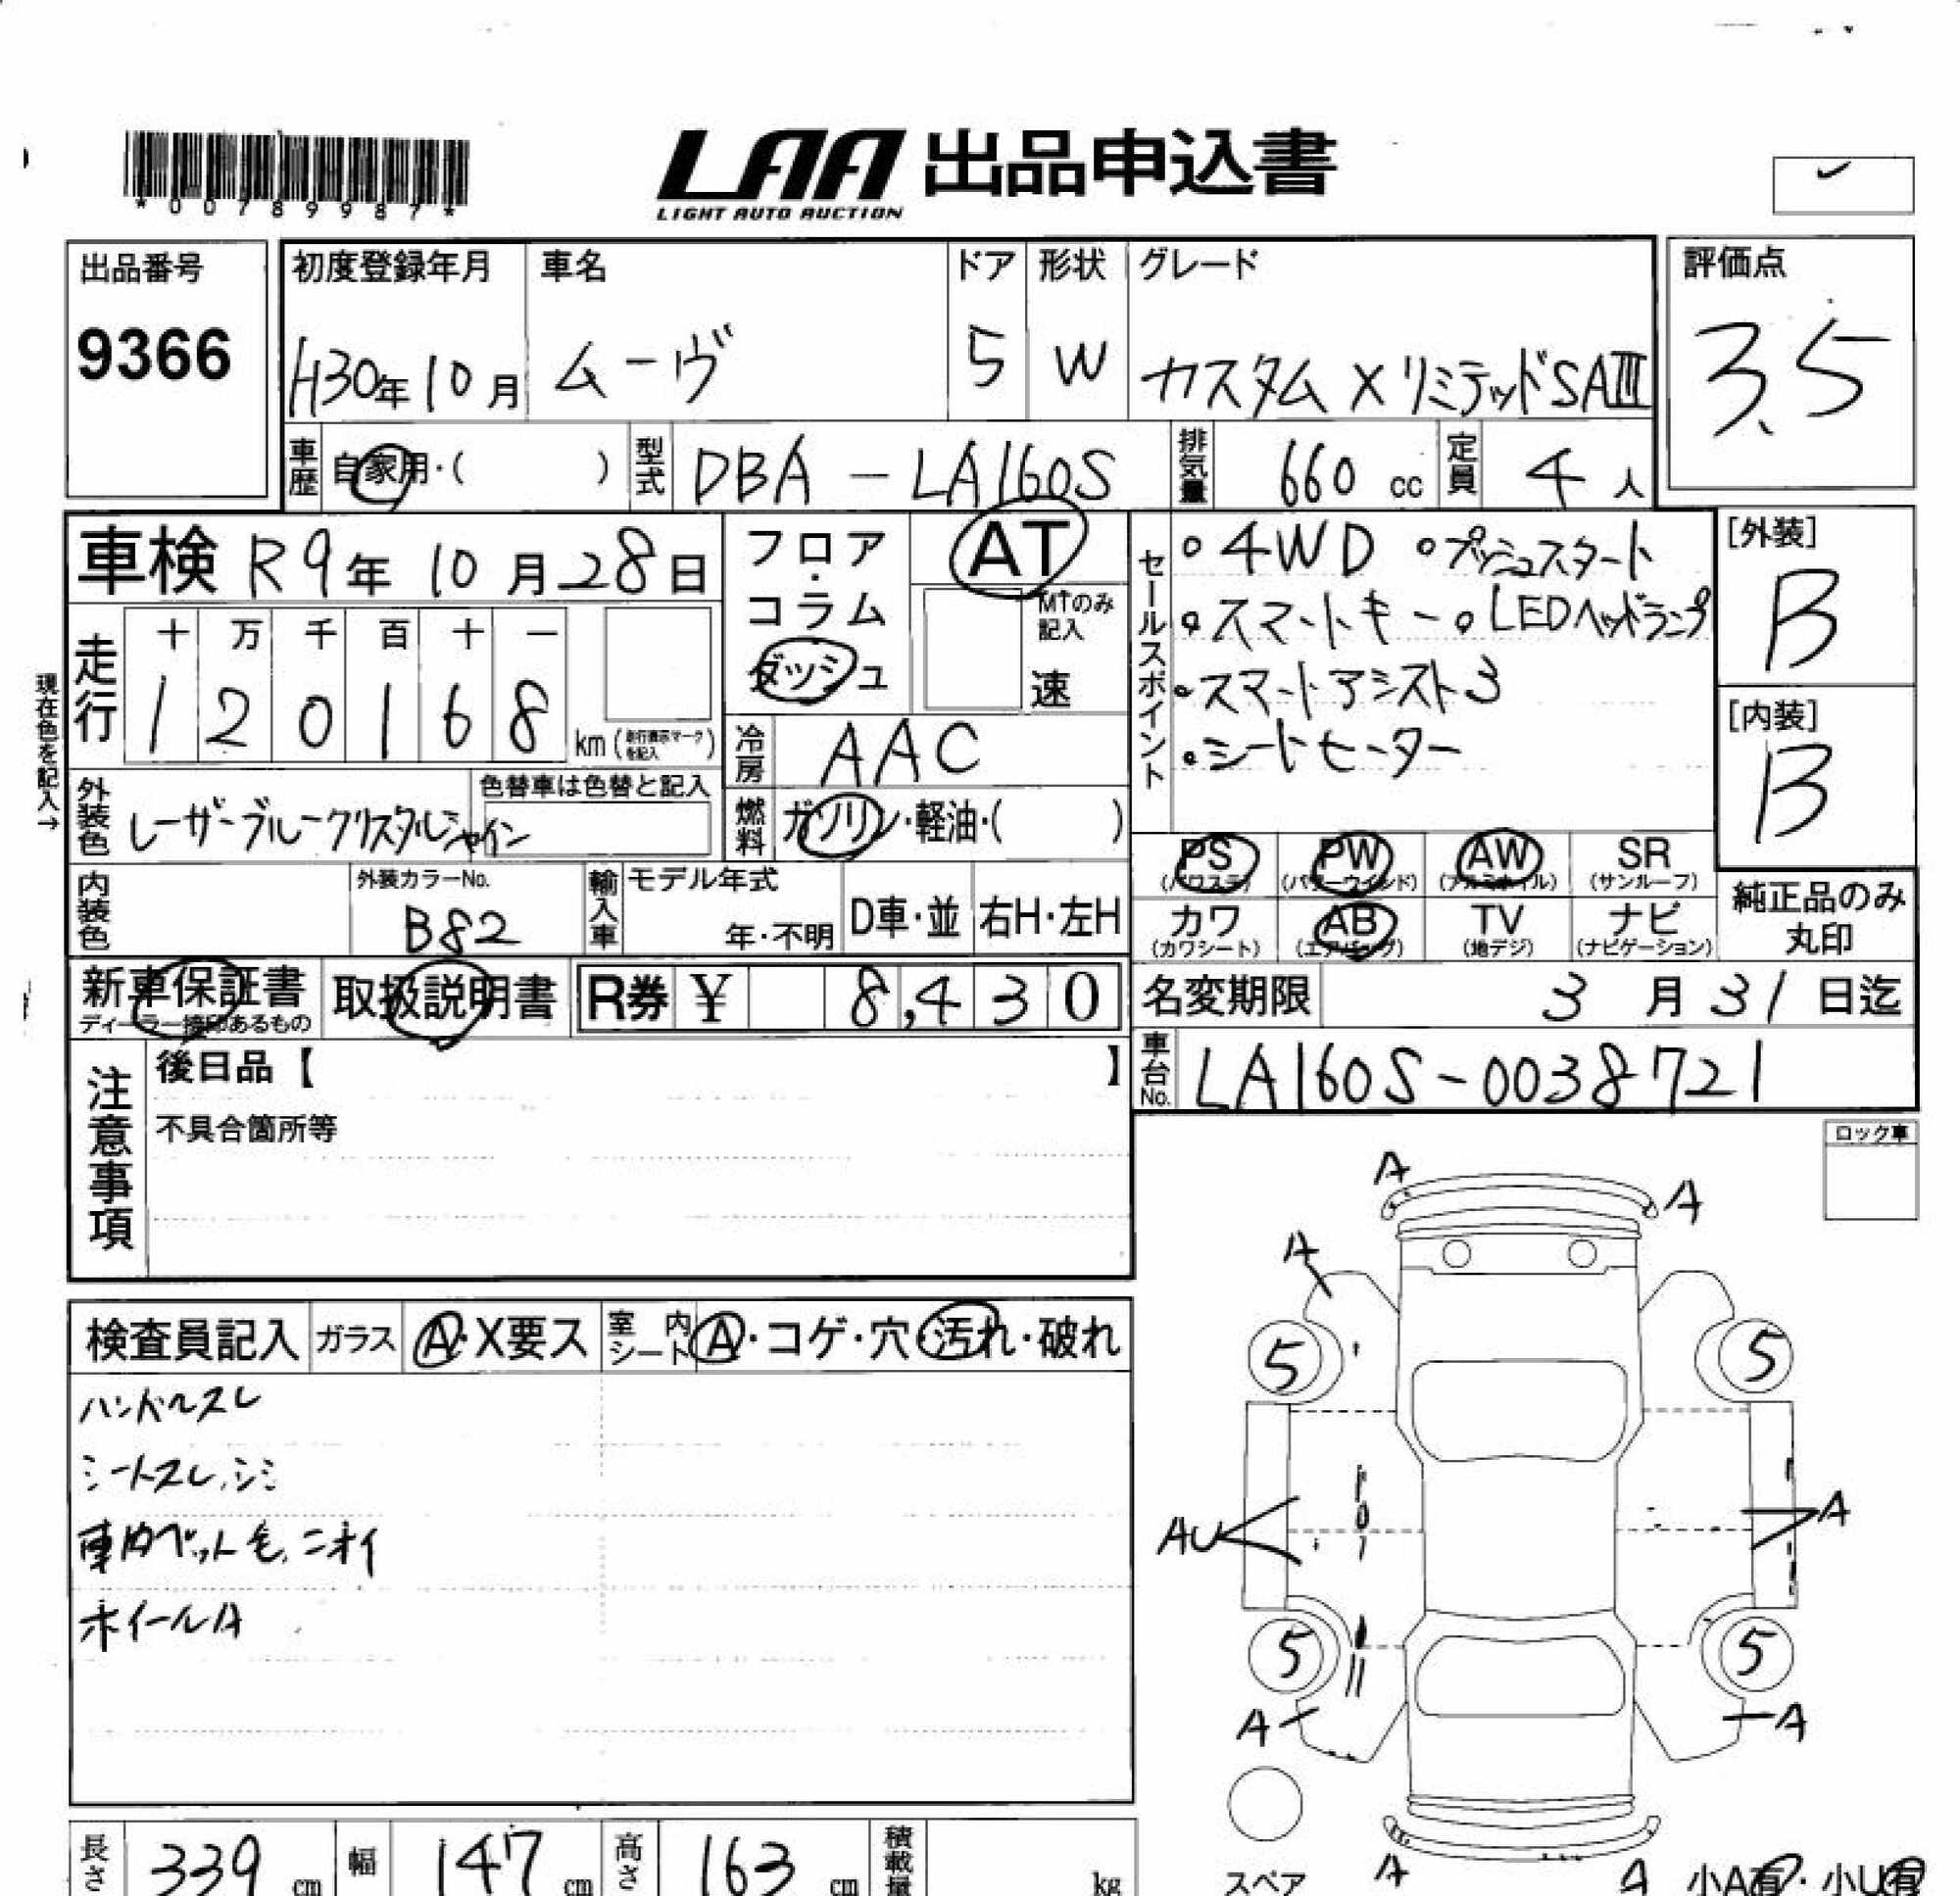 *00789987*
LAA 出品申込書
LIGHT AUTO AUCTION
出品番号
9366
初度登録年月
H30年10月
車名
ムーヴ
ドア
5
形状
W
グレード
カスタム X リミテッドSAⅢ
評価点
3.5
車歴
自家用・( )
型式
DBA-LA160S
排気量
660 cc
定員
4 人
車検 R9年10月28日
フロア・コラム
ダッシュ
AT
MTのみ記入
速
セールスポイント
・4WD ・プッシュスタート
・スマートキー ・LEDヘッドランプ
・スマートアシスト3
・シートヒーター
[外装]
B
[内装]
B
現在色を記入→
走行
十 万 千 百 十 一
1 2 0 1 6 8
km(走行表示マークを記入)
冷房
AAC
外装色
レーザーブルークリスタルシャイン
色替車は色替と記入
燃料
ガソリン・軽油・( )
PS (パワステ)
PW (パワーウインド)
AW (アルミホイル)
SR (サンルーフ)
カワ (カワシート)
AB (エアバッグ)
TV (地デジ)
ナビ (ナビゲーション)
純正品のみ
丸印
内装色
外装カラーNo.
B82
輸入車
モデル年式
年・不明
D車・並
右H・左H
新車保証書
ディーラー捺印あるもの
取扱説明書
R券 ¥ 8,430
名変期限 3月31日迄
車台No.
LA160S-0038721
注意事項
後日品【 】
不具合箇所等
ロック車
検査員記入
ガラス
A・X要ス
室内シート
A・コゲ・穴・汚れ・破れ
ハンドルスレ
シートスレ、シミ
車内ペット毛、ニオイ
ホイールA
A
A
A
5
5
AU
A
5
5
A
A
スペア
A
A
小A有・小U有
長さ
339 cm
幅
147 cm
高さ
163 cm
積載量
kg